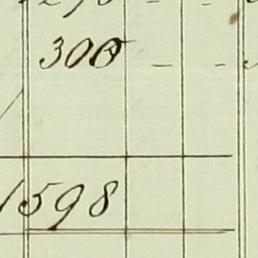 300 - -
1598